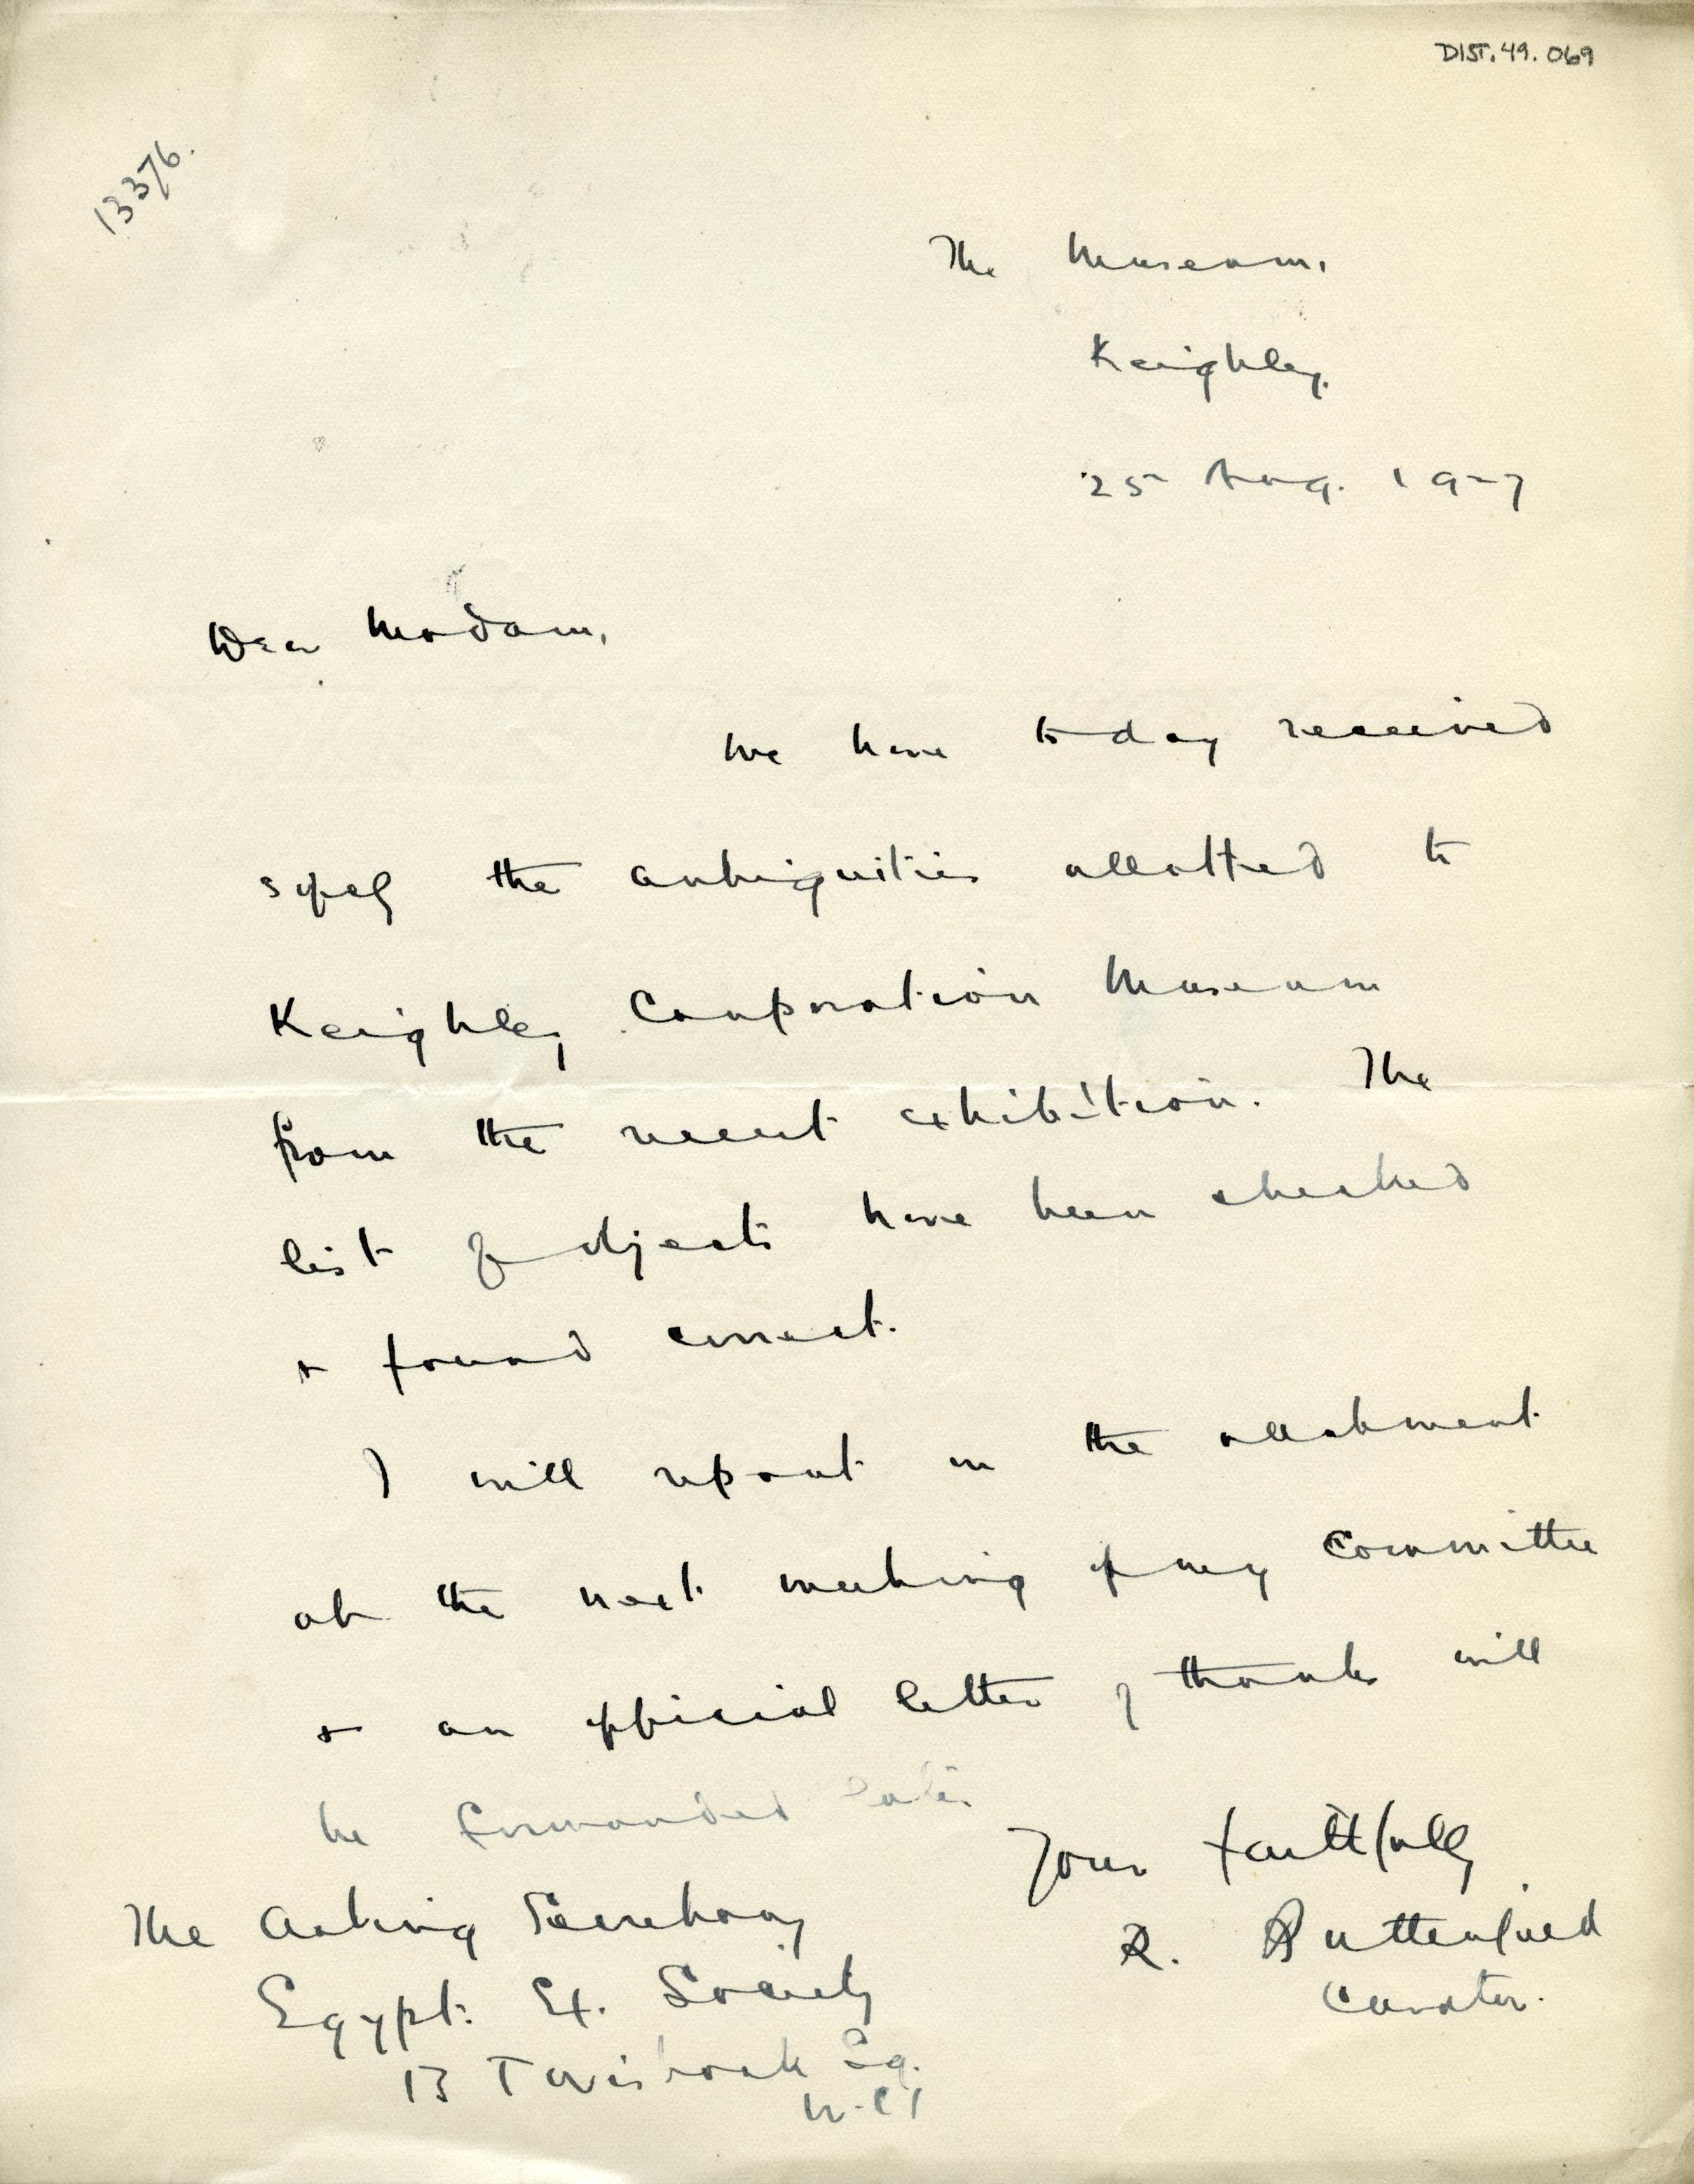 DIST.49.069
13376.
The Museum,
Keighley.
25 Aug. 1927
Dear Madam,
We have today received
safely the antiquities allotted to
Keighley Corporation Museum
from the recent exhibition. The
list of objects have been checked
& found correct.
I will report on the allotment
at the next meeting of my Committee
& an official letter of thanks will
be forwarded later.
Yours faithfully
R. Butterfield
Curator.
The Acting Secretary
Egypt. Ex. Society
13 Tavistock Sq.
W.C1